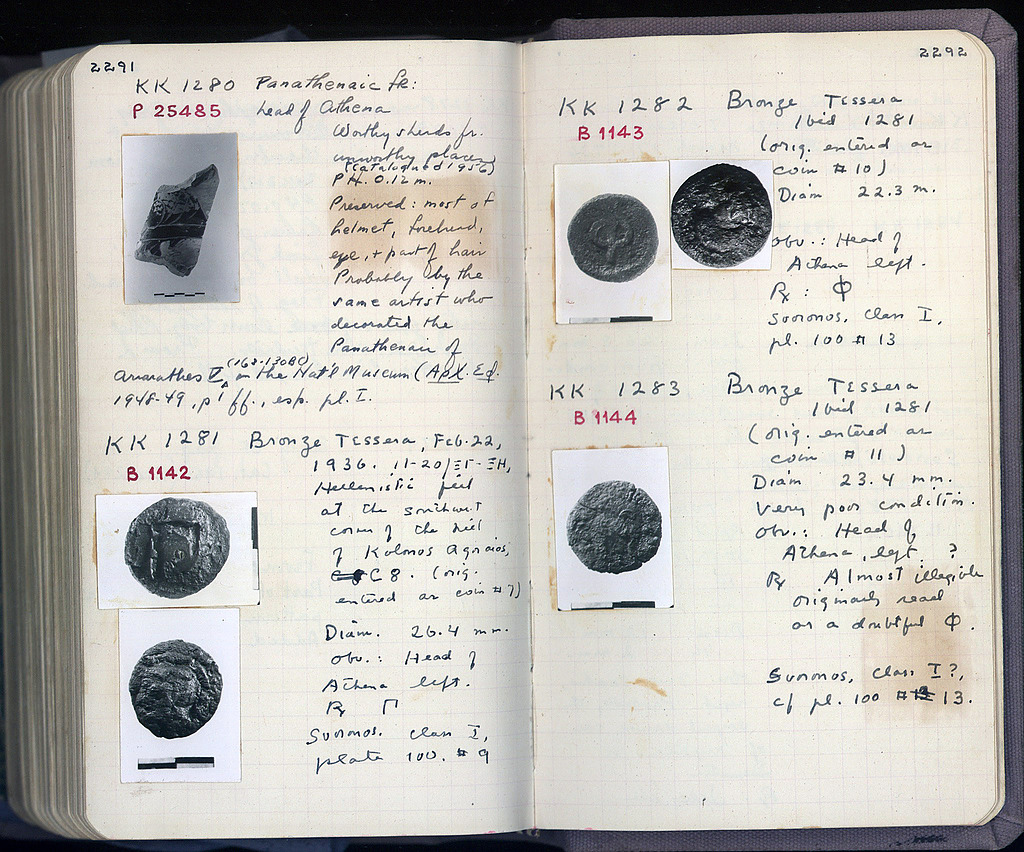 2291
KK 1280 Panathenaic fr:
P 25485 head of Athena
Worthy sherds fr.
unworthy places
(catalogued 1956)
PH. 0.12 m.
Preserved: most of
helmet, forehead,
eye, + part of hair
Probably by the
same artist who
decorated the
Panathenaic of
Ariarathes V (162-130 BC) in the Nat'l Museum (Αρχ. Εφ.
1948-49, p 1 ff., esp. pl. I.
KK 1281 Bronze Tessera, Feb. 22,
B 1142
1936. 11-20/ΞΓ-ΞΗ,
Hellenistic fill
at the southwest
corner of the hill
of Kolonos Agoraios,
C 8. (orig.
entered as coin #7)
Diam. 26.4 mm.
Obv.: Head of
Athena left.
Rx Π
Svoronos. Class I,
plate 100. # 9
2292
KK 1282 Bronze Tessera
B 1143
Ibid 1281
(orig. entered as
coin # 10)
Diam 22.3 m.
Obv.: Head of
Athena left.
Rx : Φ
Svoronos, Class I,
pl. 100 # 13
KK 1283 Bronze Tessera
B 1144
Ibid 1281
(orig. entered as
coin # 11)
Diam 23.4 mm.
Very poor condition.
Obv.: Head of
Athena, left ?
Rx Almost illegible
originally read
as a doubtful Φ.
Svoronos, Class I?,
cf pl. 100 # 13.